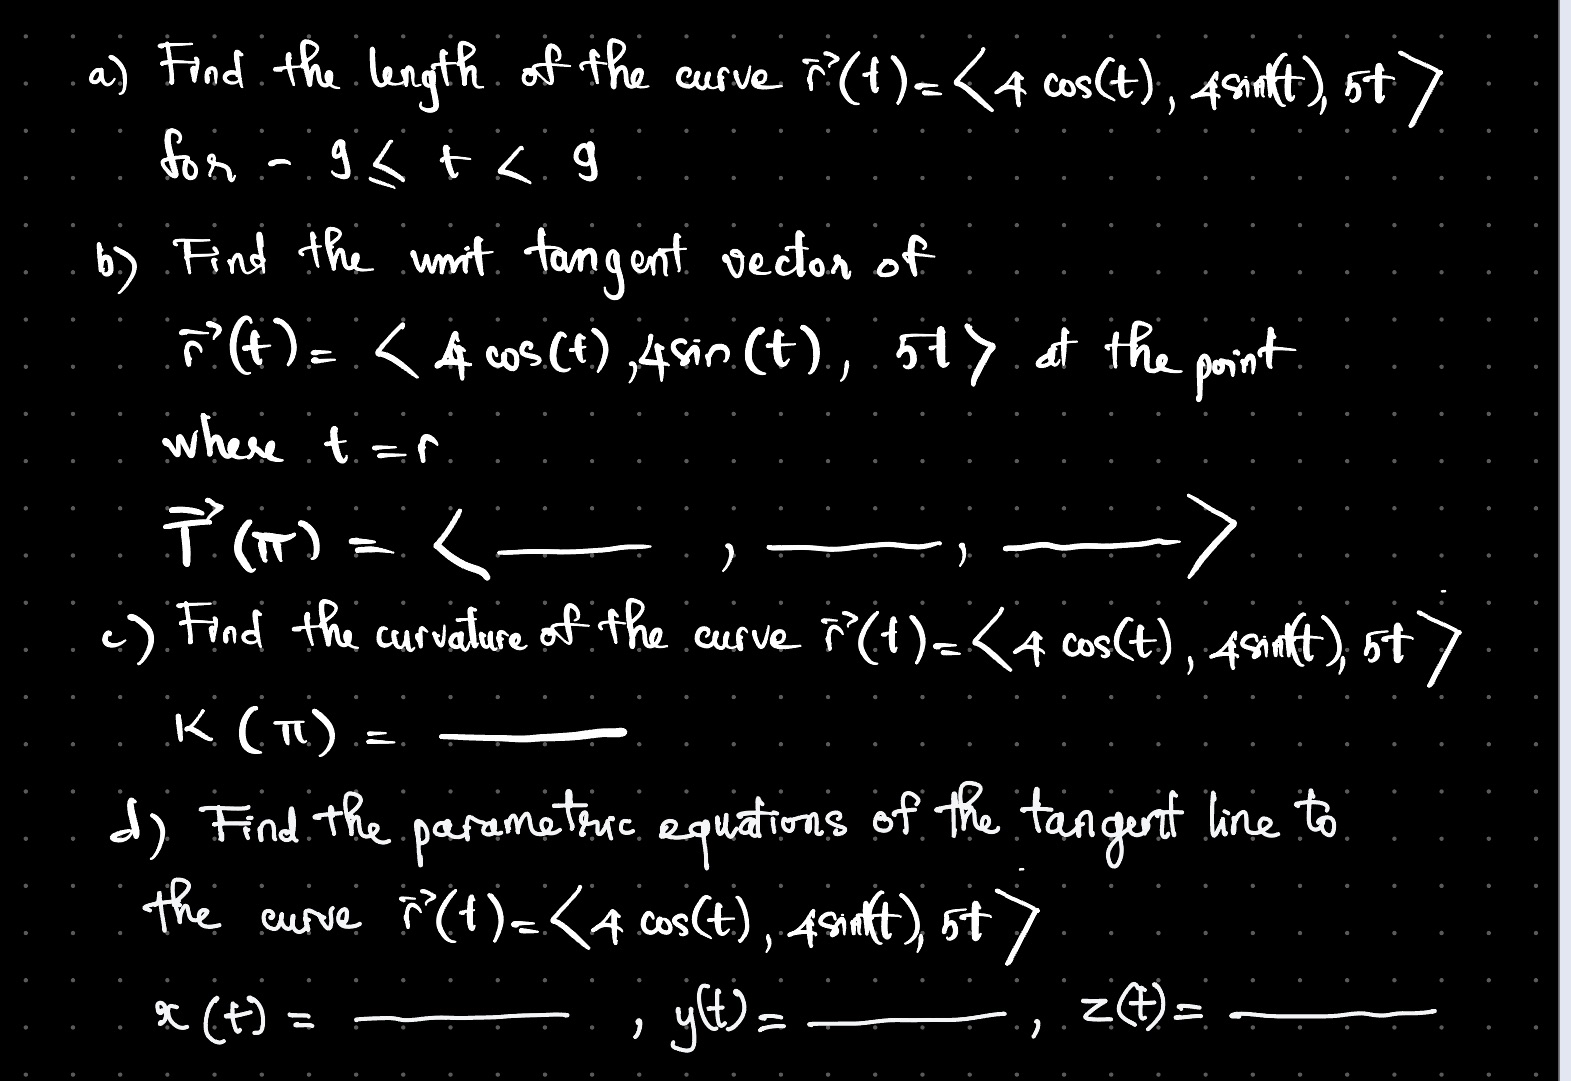 a) Find the length of the curve r⃗(t) = <4 cos(t), 4sin(t), 5t>
for - 9 ≤ t < 9
b) Find the unit tangent vector of
r⃗(t) = <4 cos(t), 4sin(t), 5t> at the point
where t = r
T⃗(π) = <____, ____, ____>
c) Find the curvature of the curve r⃗(t) = <4 cos(t), 4sin(t), 5t>
K(π) = ____
d) Find the parametric equations of the tangent line to
the curve r⃗(t) = <4 cos(t), 4sin(t), 5t>
x(t) = ____, y(t) = ____, z(t) = ____